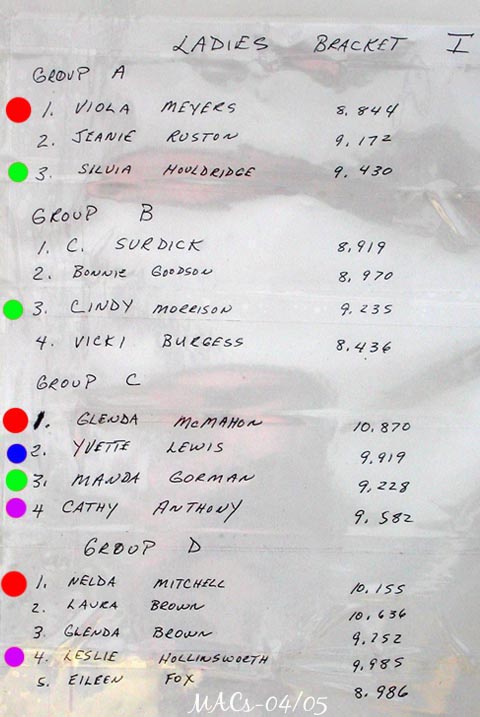 LADIES BRACKET I
GROUP A
1. VIOLA MEYERS 8.844
2. JEANIE RUSTON 9.172
3. SILVIA HOULDRIDGE 9.430
GROUP B
1. C. SURDICK 8.919
2. BONNIE GOODSON 8.970
3. CINDY MORRISON 9.235
4. VICKI BURGESS 8.436
GROUP C
1. GLENDA McMAHON 10.870
2. YVETTE LEWIS 9.919
3. MANDA GORMAN 9.228
4 CATHY ANTHONY 9.582
GROUP D
1. NELDA MITCHELL 10.155
2. LAURA BROWN 10.636
3. GLENDA BROWN 9.252
4. LESLIE HOLLINSWORTH 9.985
5. EILEEN FOX 8.986
MACs-04/05